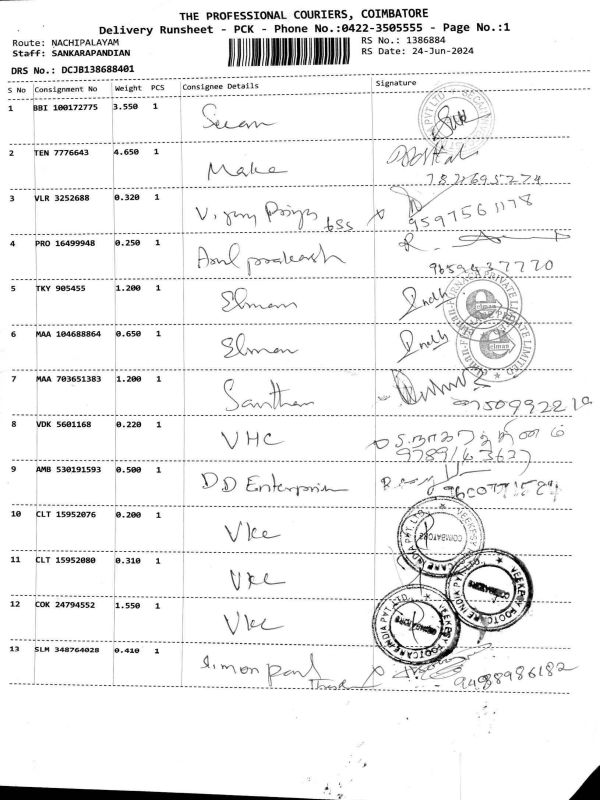 THE PROFESSIONAL COURIERS, COIMBATORE
Delivery Runsheet - PCK - Phone No.:0422-3505555 - Page No.:1
Route: NACHIPALAYAM
RS No.: 1386884
Staff: SANKARAPANDIAN
RS Date: 24-Jun-2024
DRS No.: DCJB138688401
S No Consignment No Weight PCS Consignee Details Signature
1 BBI 100172775 3.550 1
2 TEN 7776643 4.650 1 Make
3 VLR 3252688 0.320 1 9597561178
4 PRO 16499948 0.250 1 Arul prakash
9659437770
5 TKY 905455 1.200 1 Elman
6 MAA 104688864 0.650 1 Elman
7 MAA 703651383 1.200 1 Santhan
8 VDK 5601168 0.220 1 VHC
9789143627
9 AMB 530191593 0.500 1 DD Enterprises
10 CLT 15952076 0.200 1 Vkc
11 CLT 15952080 0.310 1 Vkc
12 COK 24794552 1.550 1 Vkc
VEEKESY FOOTCARE INDIA PVT LTD
COIMBATORE
13 SLM 348764028 0.410 1 Simon paul
9488986182